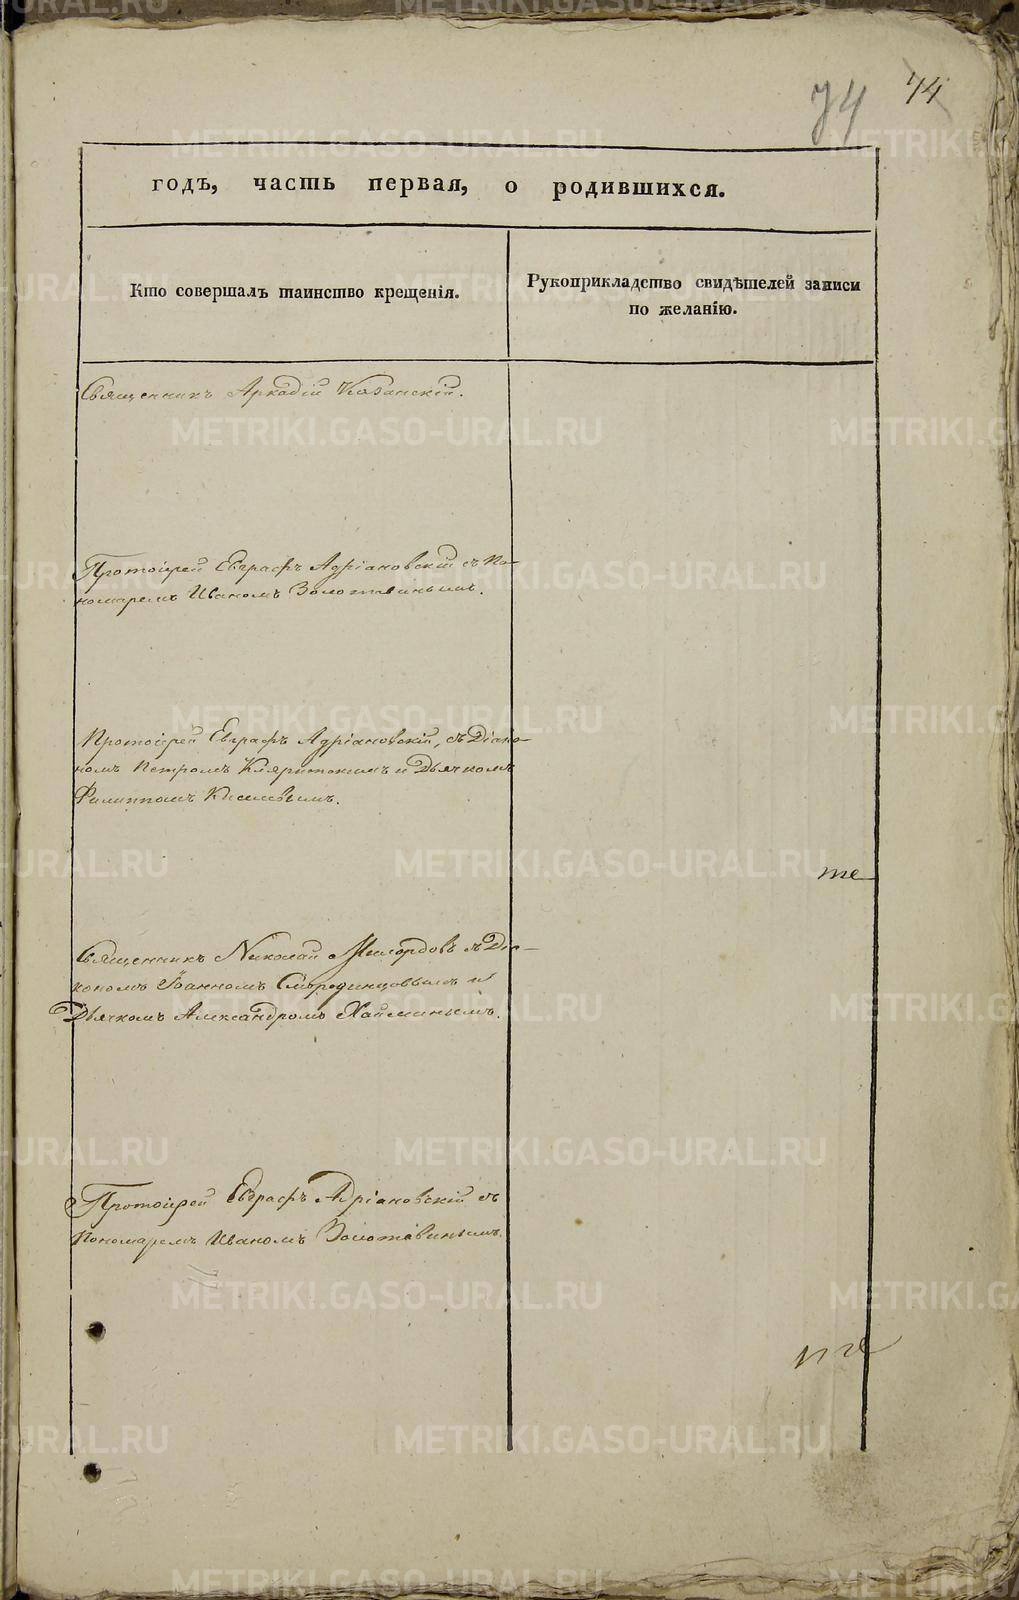 74 74
годъ, часть первая, о родившихся.
Кто совершалъ таинство крещенія.
Рукоприкладство свидѣтелей записи
по желанію.
Священникъ Аркадій Казанскій.
Протоіерей Евграфъ Адріановскій съ По-
номаремъ Иваномъ Золотавинымъ.
Протоіерей Евграфъ Адріановскій, съ Діако-
номъ Петромъ и Дьячкомъ
Филиппомъ Киселевымъ.
те
Священникъ Николай Милордовъ съ Діа-
кономъ Іоанномъ Серединцовымъ и
Дьячкомъ Александромъ Хайминымъ.
Протоіерей Евграфъ Адріановскій съ
Пономаремъ Иваномъ Золотавинымъ.
METRIKI.GASO-URAL.RU